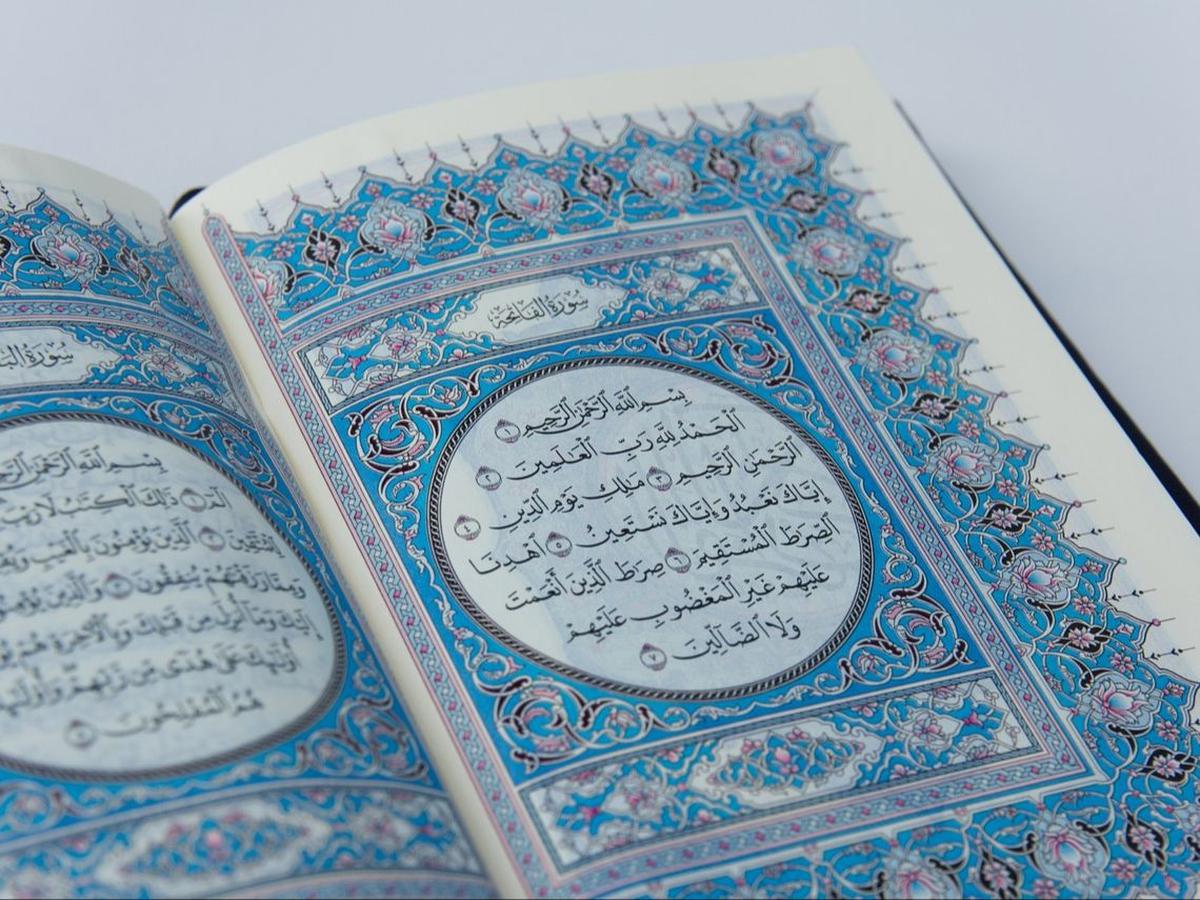 سُورَةُ الفَاتِحَةِ
بِسْمِ ٱللَّهِ ٱلرَّحْمَٰنِ ٱلرَّحِيمِ ١
ٱلْحَمْدُ لِلَّهِ رَبِّ ٱلْعَٰلَمِينَ ٢
ٱلرَّحْمَٰنِ ٱلرَّحِيمِ ٣ مَٰلِكِ يَوْمِ ٱلدِّينِ ٤
إِيَّاكَ نَعْبُدُ وَإِيَّاكَ نَسْتَعِينُ ٥ ٱهْدِنَا
ٱلصِّرَٰطَ ٱلْمُسْتَقِيمَ ٦ صِرَٰطَ ٱلَّذِينَ أَنْعَمْتَ
عَلَيْهِمْ غَيْرِ ٱلْمَغْضُوبِ عَلَيْهِمْ
وَلَا ٱلضَّآلِّينَ ٧
سُورَةُ
بِسْمِ ٱللَّهِ ٱلرَّحْمَٰنِ
الٓمٓ ١ ذَٰلِكَ ٱلْكِتَٰبُ لَا
لِّلْمُتَّقِينَ ٢ ٱلَّذِينَ يُؤْمِنُونَ بِٱلْغَيْبِ
وَمِمَّا رَزَقْنَٰهُمْ يُنفِقُونَ ٣ وَٱلَّذِينَ
إِلَيْكَ وَمَآ أُنزِلَ مِن قَبْلِكَ وَبِٱلْءَاخِرَةِ هُمْ
أُو۟لَٰٓئِكَ عَلَىٰ هُدًى مِّن رَّبِّهِمْ
هُمُ ٱلْمُفْلِحُونَ ٥